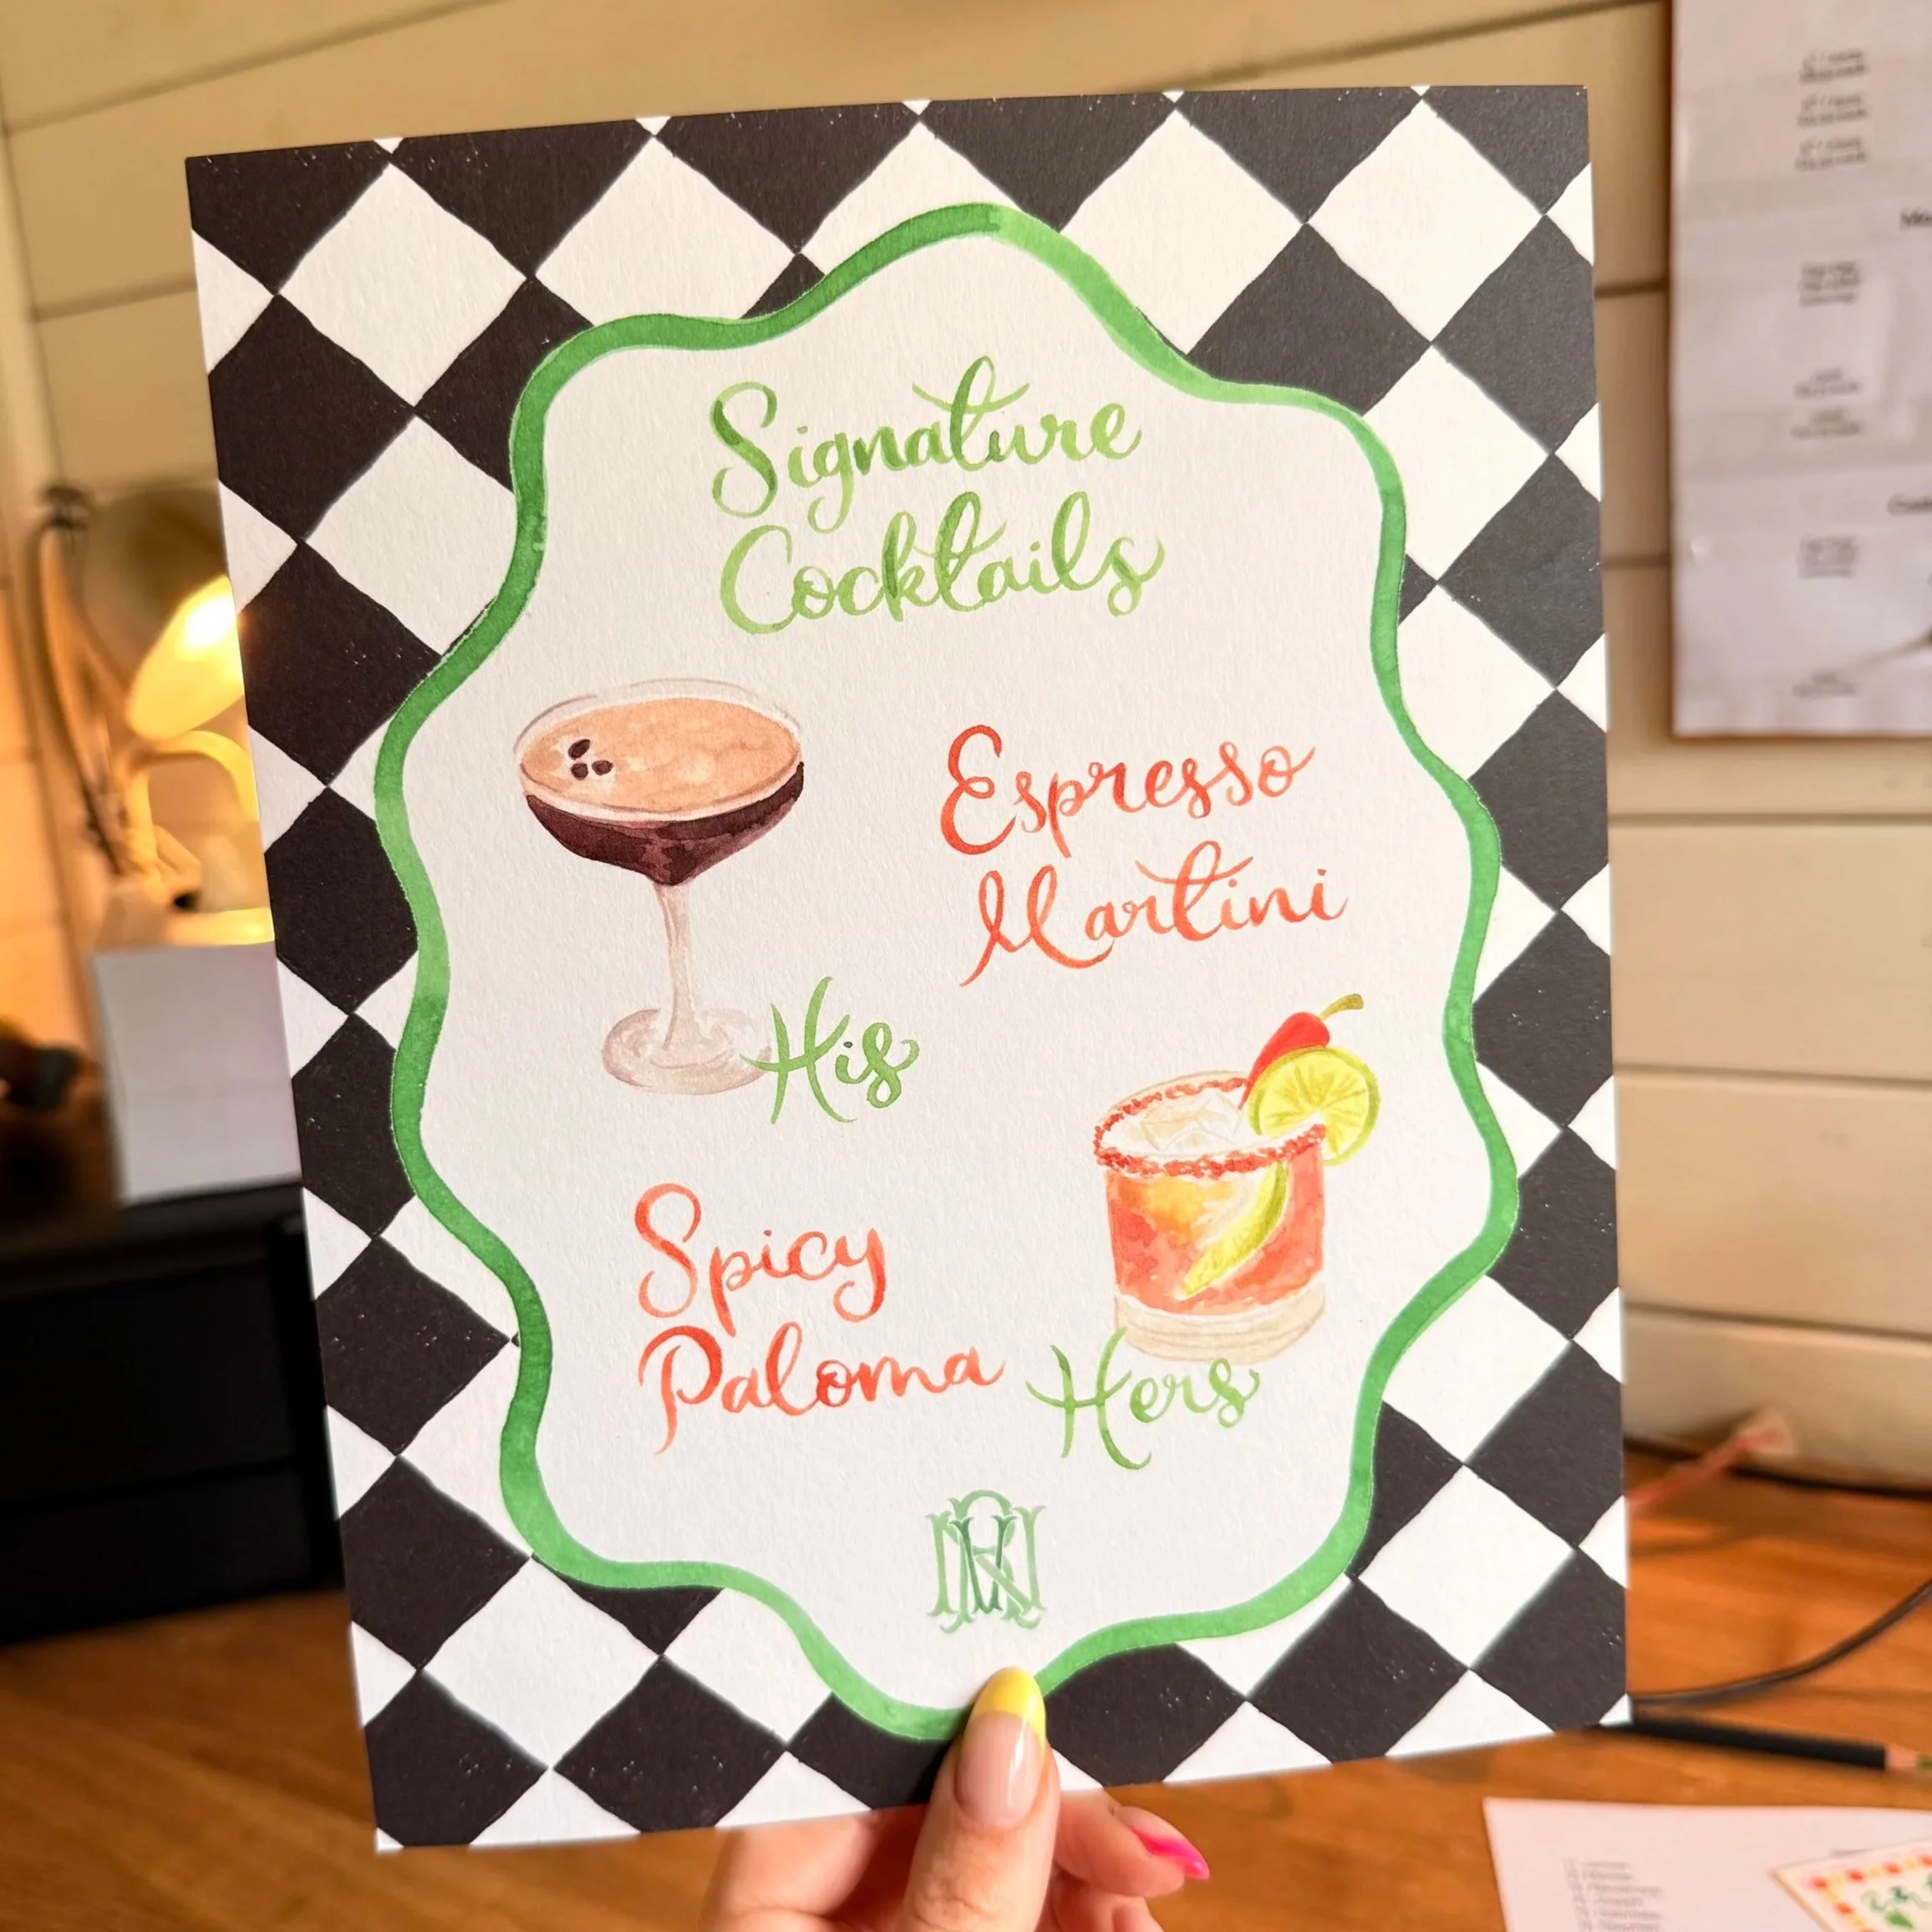 Signature
Cocktails
Espresso
Martini
His
Spicy
Paloma
Hers